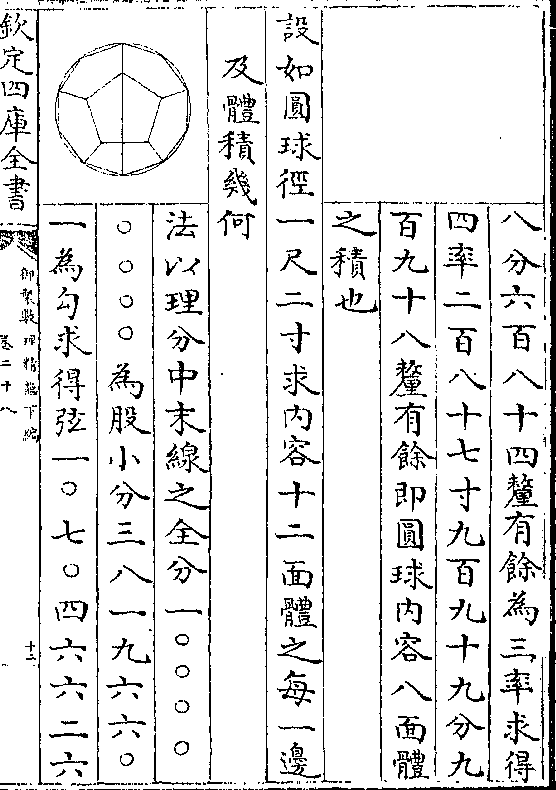 八分六百八十四釐有餘為三率求得
四率二百八十七寸九百九十九分九
百九十八釐有餘即圓球内容八面體
之積也
設如圓球徑一尺二寸求内容十二面體之每一邊
及體積幾何
法以理分中末線之全分一○○○○
○○○○為股小分三八一九六六○
一為勾求得弦一○七○四六六二六
欽定四庫全書
御製數理精藴下編
卷二十八
十三